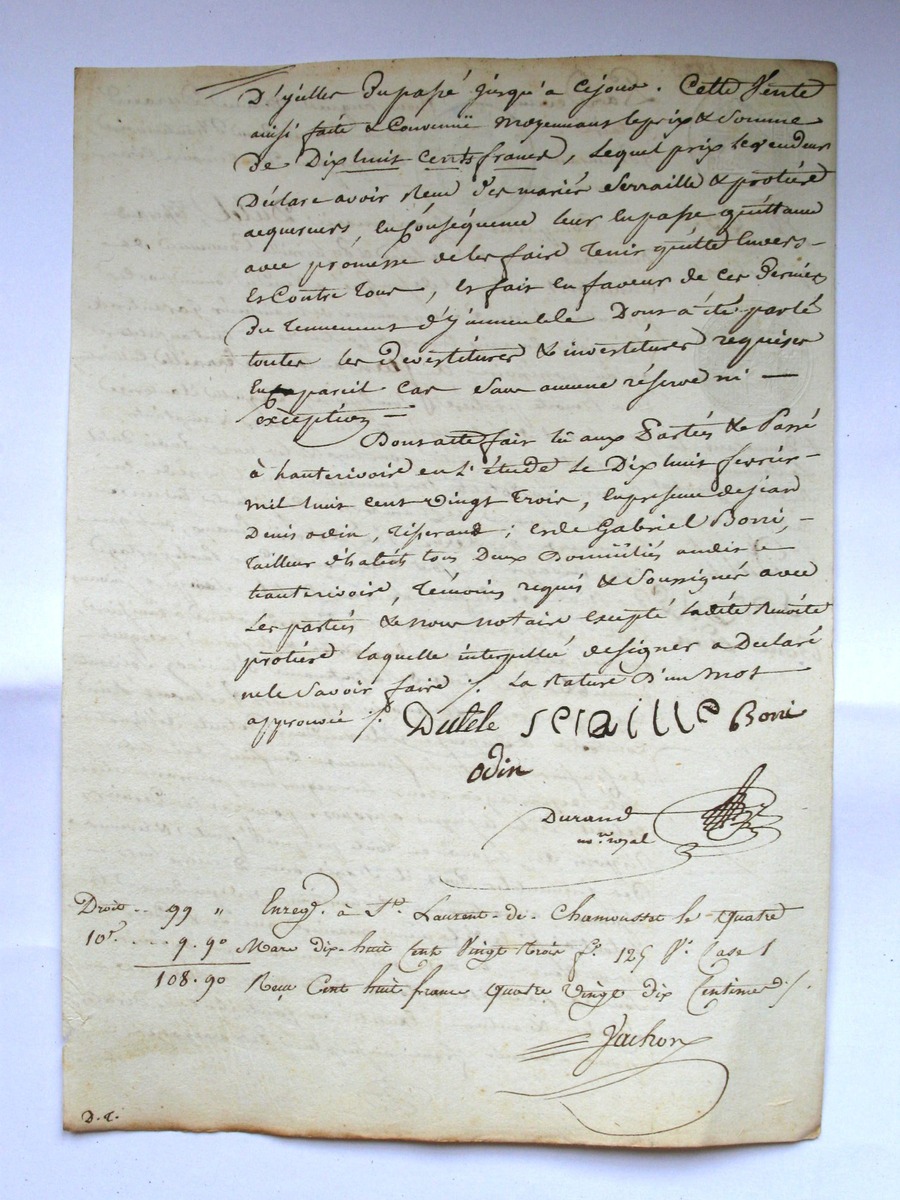 D'y celles du passé jusqu'a cejour. Cette Vente
ainsi faite & Convenuë moyennant leprix & Somme
de Dix huit Cents francs, Lequel prix Levendeur
Déclare avoir Reçu Des mariés Serraille & protiére
acquereurs, En Conséquence leur En passe quittance
avec promesse de les faire Tenir quitte Envers
Et Contre Tous, Et fait En faveur de Ces Derniers
Du Tennement d'y immeuble Dont a été parlé
toutes les Devestitures & investitures requises
En pareil Cas Sans aucune réserve ni
exception
Dont acte fait lu aux Parties & Passé
à hauterivoire en L'étude Le Dix huit fevrier
mil huit Cent Vingt Trois, En présence de jean
Denis odin, Tisserand; Et de Gabriel Borri,
Tailleur d'habits tous Deux Domiciliés audit
hauterivoire, Témoins requis & Soussignés avec
Les parties & nous notaire Excepté Ladite Benoite
protiére Laquelle interpellée designer a Déclaré
nele Savoir faire ./. La rature D'un mot
approuvée ./.
Dutèle seraille Borri
odin
Durand
no.re royal
Droit .. 99 " Enregé. à St. Laurent-de-Chamousset le quatre
10e. ... 9.90 Mars dix-huit Cent Vingt trois fo. 125 Vo. Case 1
108.90 Reçu Cent huit francs quatre Vingt dix Centimes ./.
Vachon
D.t.